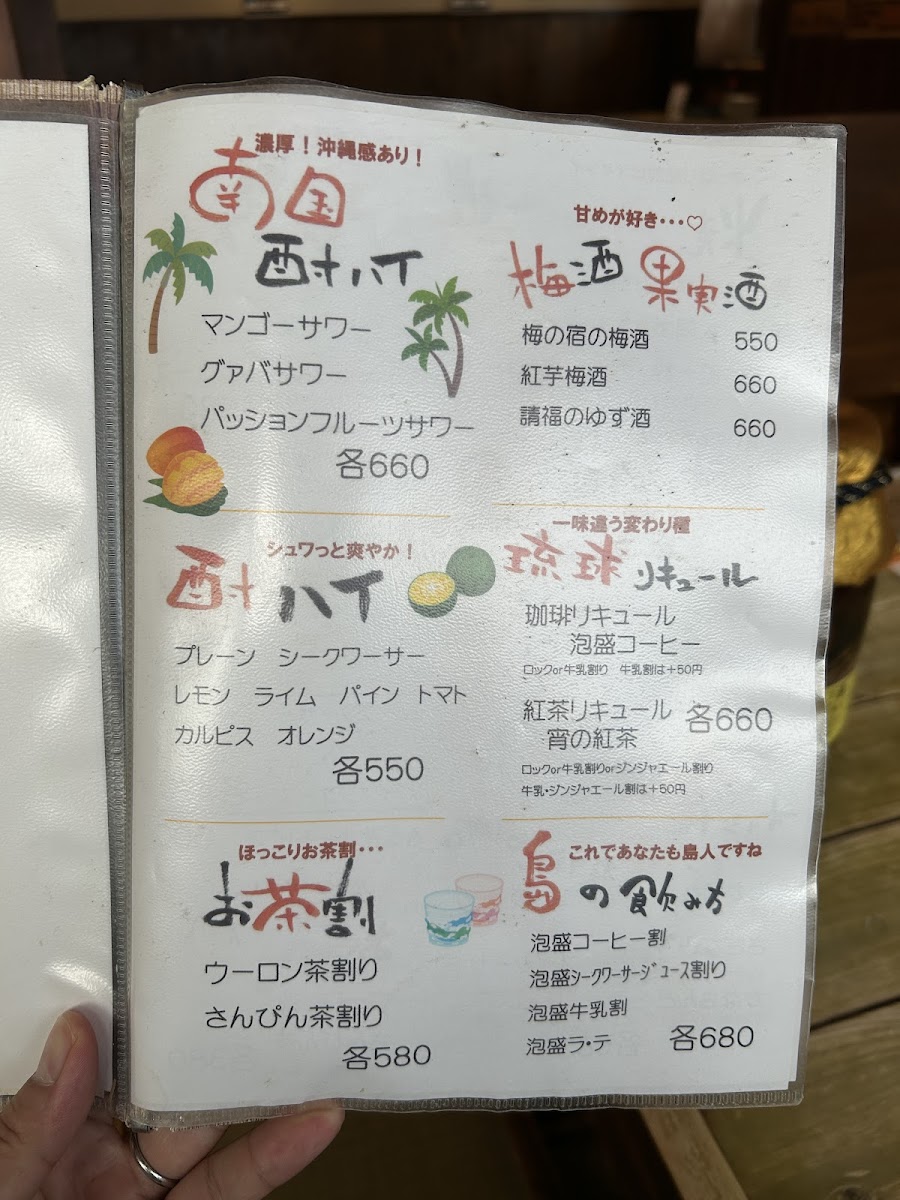 濃厚！沖縄感あり！
南国
酎ハイ
マンゴーサワー
グァバサワー
パッションフルーツサワー
各660
シュワっと爽やか！
酎ハイ
プレーン　シークワーサー
レモン　ライム　パイン　トマト
カルピス　オレンジ
各550
ほっこりお茶割・・・
お茶割
ウーロン茶割り
さんぴん茶割り
各580
甘めが好き・・・♡
梅酒 果実酒
梅の宿の梅酒 550
紅芋梅酒 660
請福のゆず酒 660
一味違う変わり種
琉球リキュール
珈琲リキュール
泡盛コーヒー
ロックor牛乳割り　牛乳割は＋50円
紅茶リキュール 各660
宵の紅茶
ロックor牛乳割りorジンジャエール割り
牛乳・ジンジャエール割は＋50円
これであなたも島人ですね
島の飲み方
泡盛コーヒー割
泡盛シークワーサージュース割り
泡盛牛乳割
泡盛ラ・テ 各680